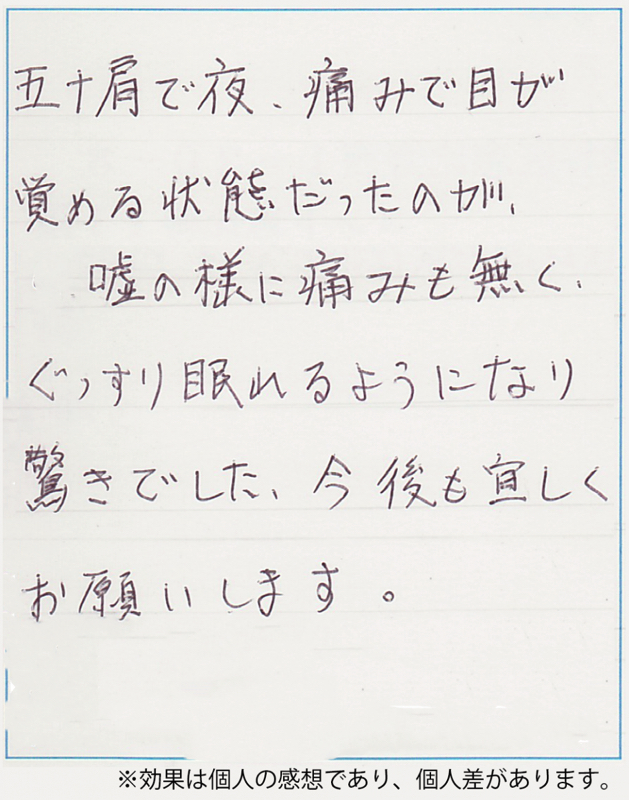 五十肩で夜、痛みで目が
覚める状態だったのが、
嘘の様に痛みも無く、
ぐっすり眠れるようになり
驚きでした、今後も宜しく
お願いします。
※効果は個人の感想であり、個人差があります。